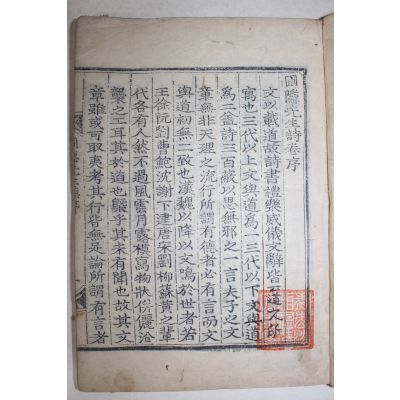 圃隱先生詩卷序
文以載道故詩書禮樂威儀文辭皆至道之所
寓也三代以上文與道為一三代以下文與道
為二盖詩三百蔽以思無邪之一言夫子之文
章無非天理之流行所謂有德者必有言而文
與道初無二致也漢魏以降以文鳴於世者若
王徐阮劉曹鮑沈謝下逮唐宋劉柳蘇黃之輩
代各有人然不過風雲月露模寫物狀份儷沿
襲之工耳其於道也槩乎其未有聞也故其文
章雖或可取夷考其行皆無足論所謂有言者